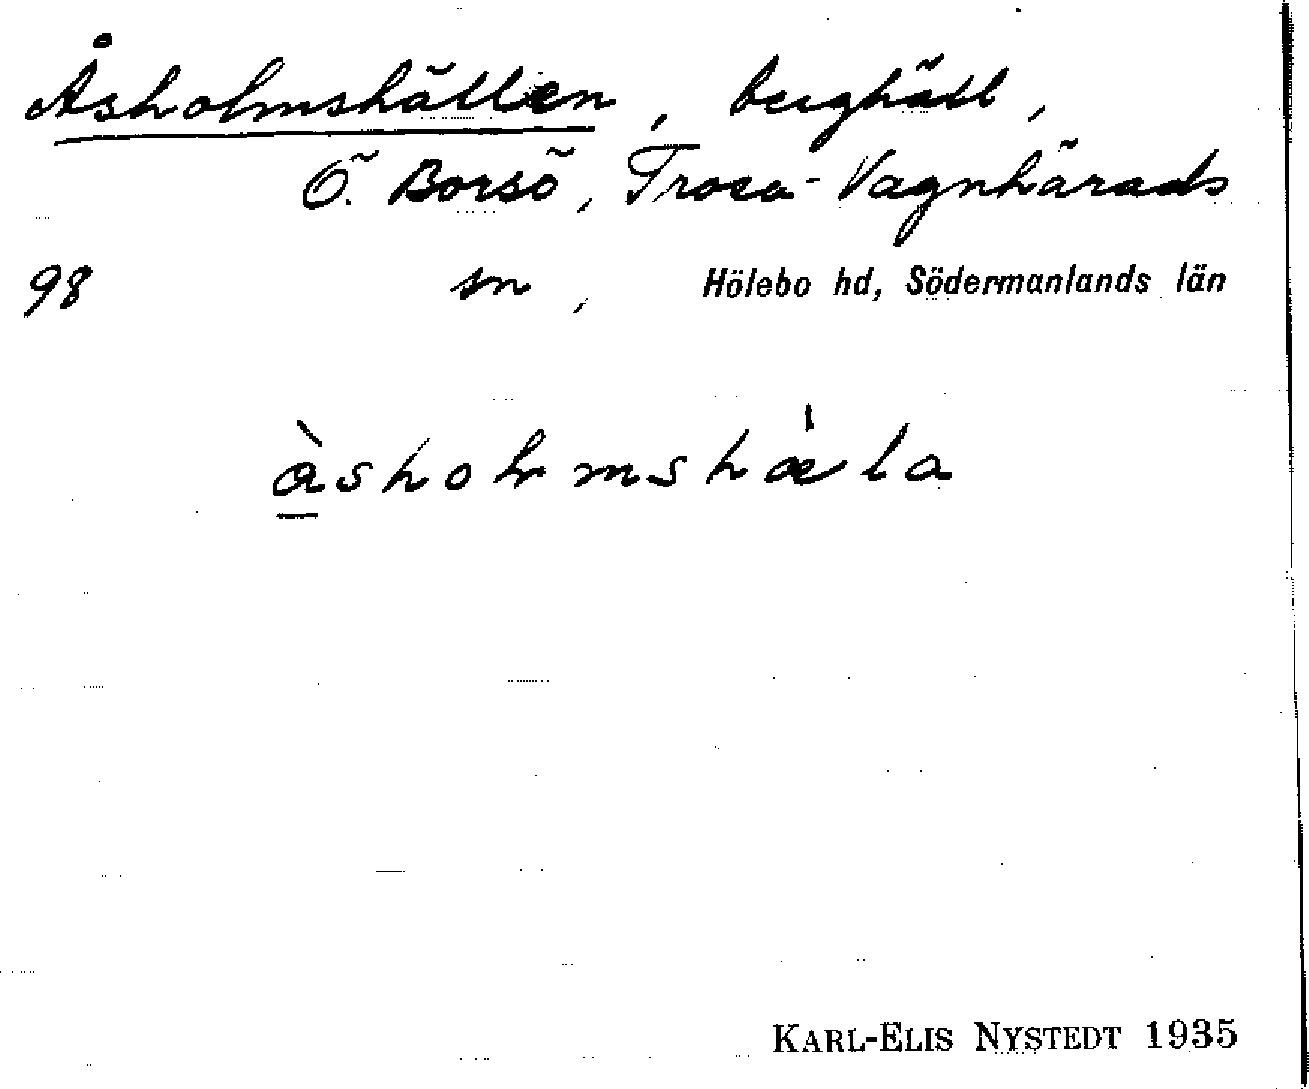 Åsholmshällen, berghäll,
Ö. Borsö, Trosa-Vagnhärads
98 sn, Hölebo hd, Södermanlands län
àsholmshæ̍la
KARL-ELIS NYSTEDT 1935